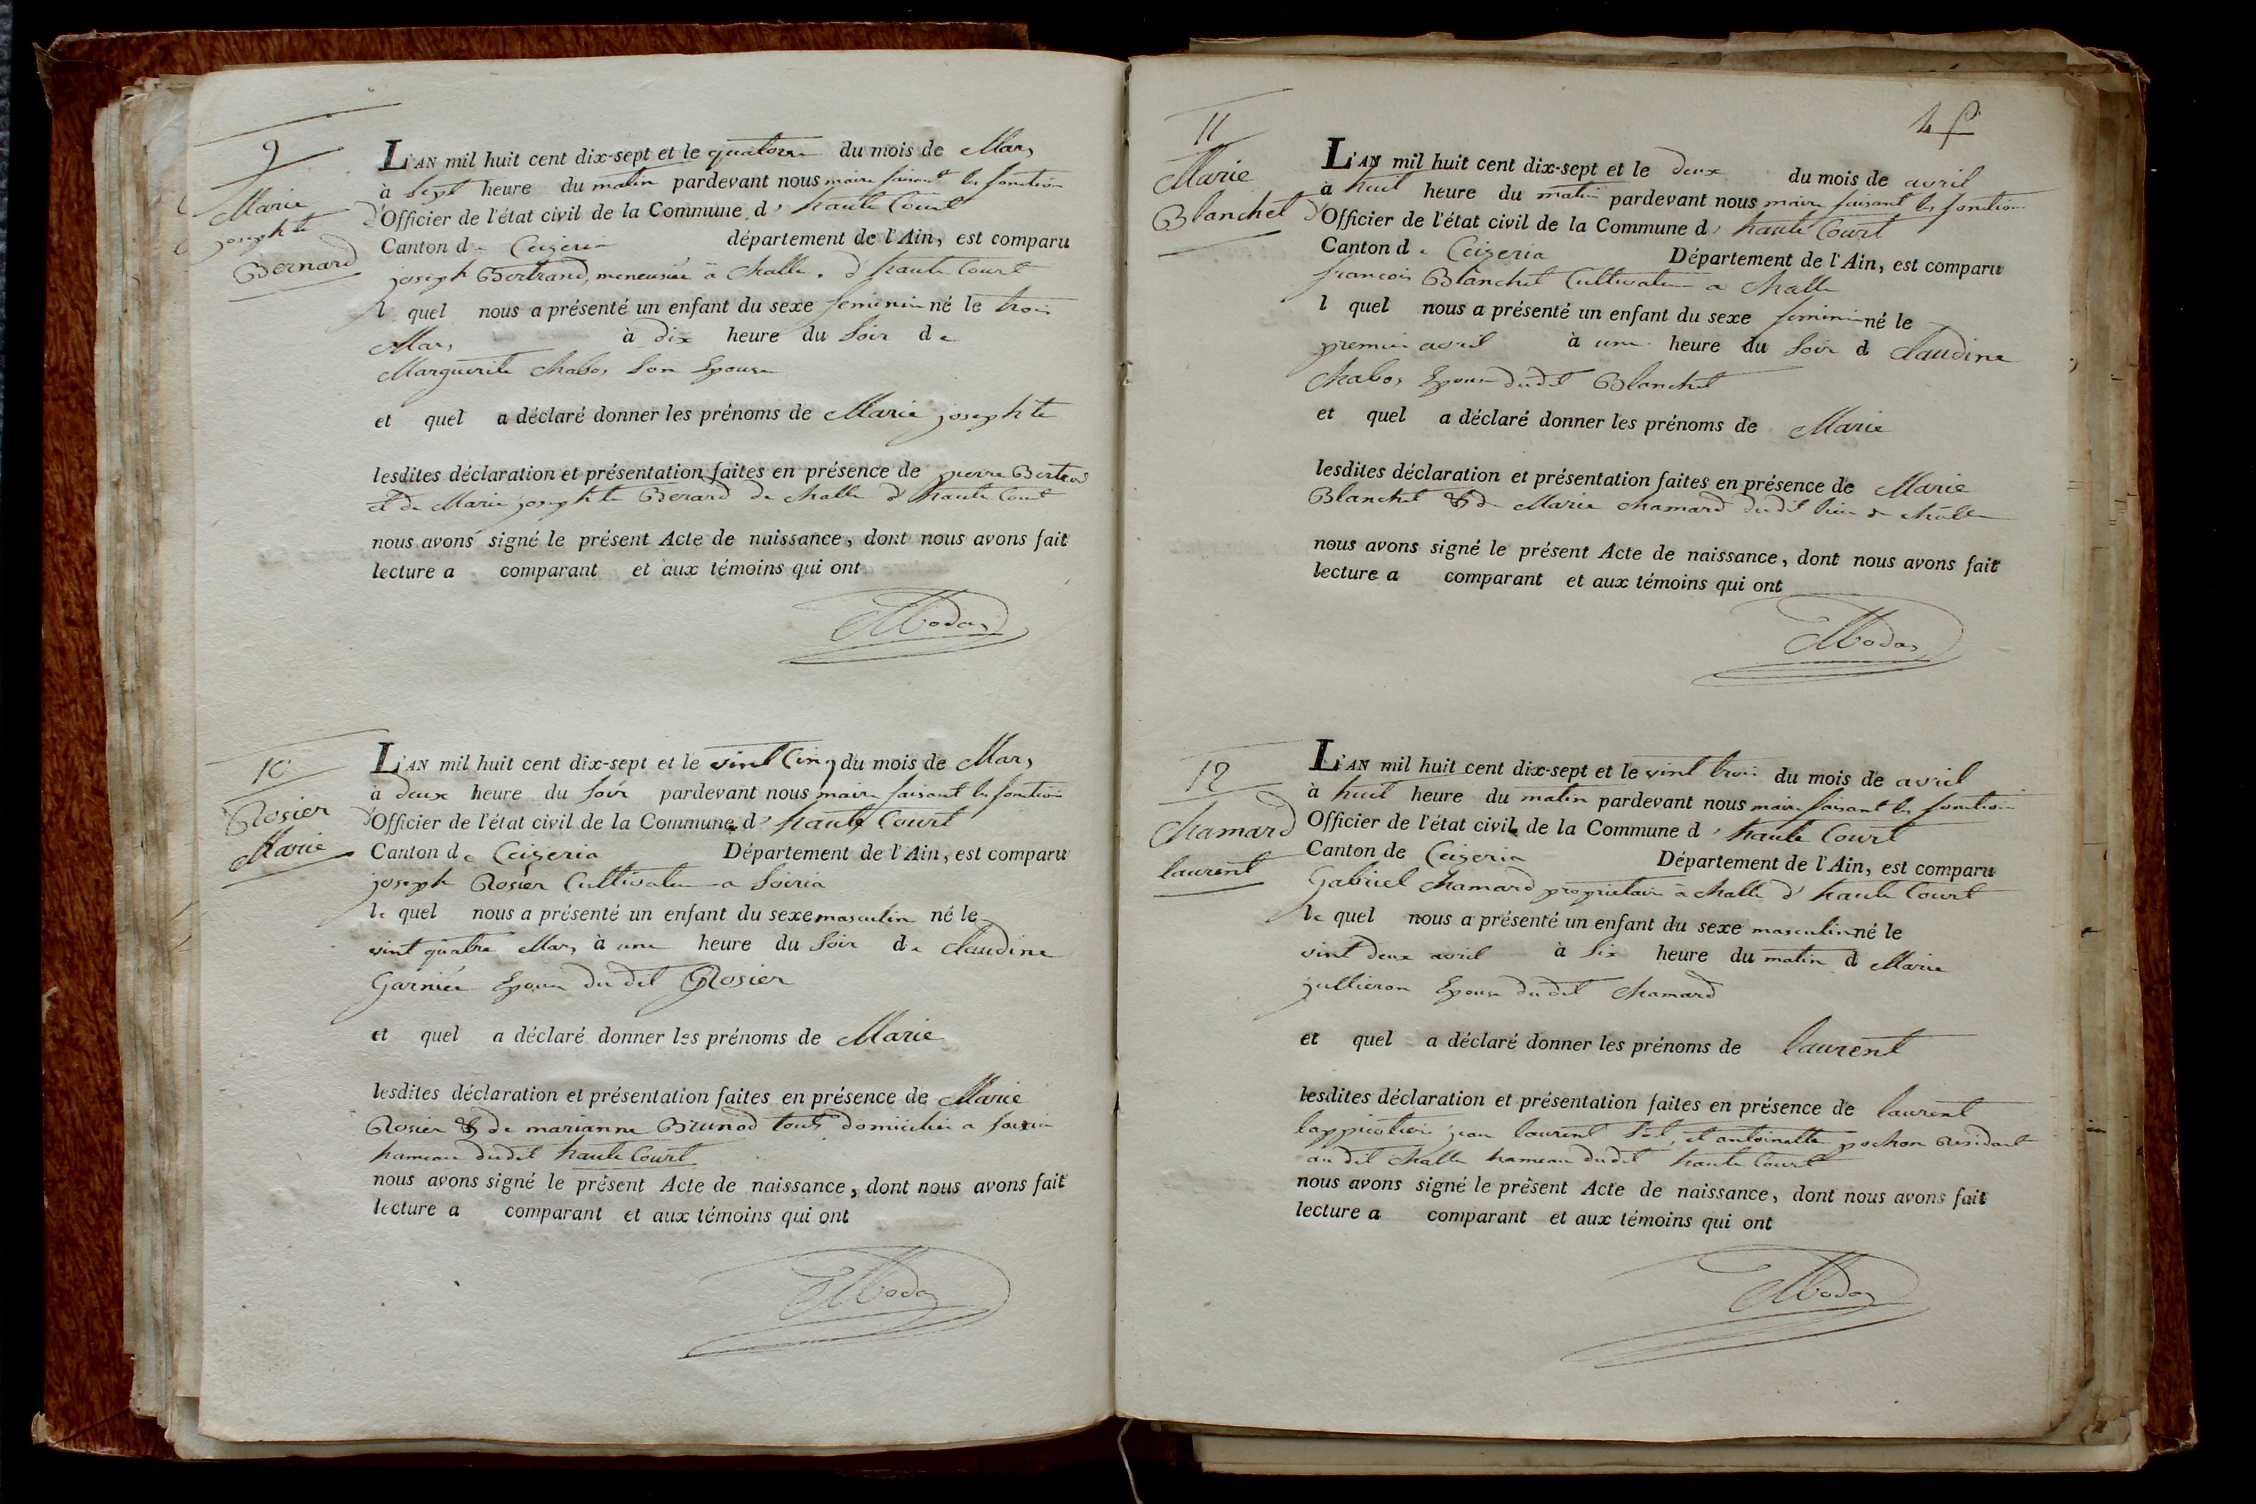 9
Marie
josephte
Bernard
L'AN mil huit cent dix-sept et le quatorze du mois de Mars
à sept heure du matin pardevant nous maire faisant les fonction
d'Officier de l'état civil de la Commune d' haute Court
Canton de Ceizeria département de l'Ain, est comparu
joseph Bertrand, meneusiée à Challe d' haute Court
l quel nous a présenté un enfant du sexe feminin né le trois
Mars à dix heure du soir de
Marguerite Chabos son Epouse
et quel a déclaré donner les prénoms de Marie josephte
lesdites déclaration et présentation faites en présence de pierre Bertrand
et de Marie josephte Berard de Challe d' haute Court
nous avons signé le présent Acte de naissance, dont nous avons fait
lecture a comparant et aux témoins qui ont
10
Rosier
Marie
L'AN mil huit cent dix-sept et le vint Cinq du mois de Mars
à deux heure du soir pardevant nous maire faisant les fonction
d'Officier de l'état civil de la Commune d' haute Court
Canton de Ceizeria Département de l'Ain, est comparu
joseph Rosier Cultivateur a Soiria
le quel nous a présenté un enfant du sexe masculin né le
vint quatre Mars à une heure du soir de Claudine
Garniée Epouse du dit Rosier
et quel a déclaré donner les prénoms de Marie
lesdites déclaration et présentation faites en présence de Marie
Rosier & de marianne Brunod tous domicilié a soiria
hameau dudit haute Court
nous avons signé le présent Acte de naissance, dont nous avons fait
lecture a comparant et aux témoins qui ont
11
Marie
Blanchet
L'AN mil huit cent dix-sept et le deux du mois de avril
à huit heure du matin pardevant nous maire faisant les fonction
d'Officier de l'état civil de la Commune d' haute Court
Canton de Ceizeria Département de l'Ain, est comparu
francois Blanchet Cultivateur a Challe
l quel nous a présenté un enfant du sexe feminin né le
premier avril à une heure du soir d Claudine
Chabos Epouse dudit Blanchet
et quel a déclaré donner les prénoms de Marie
lesdites déclaration et présentation faites en présence de Marie
Blanchet & de Marie Chamard dudit lieu de Challe
nous avons signé le présent Acte de naissance, dont nous avons fait
lecture a comparant et aux témoins qui ont
12
Chamard
laurent
L'AN mil huit cent dix-sept et le vint trois du mois de avril
à huit heure du matin pardevant nous maire faisant les fonction
Officier de l'état civil de la Commune d' haute Court
Canton de Ceizeria Département de l'Ain, est comparu
Gabriel Chamard proprietaire à Challe d' haute Court
le quel nous a présenté un enfant du sexe masculin né le
vint deux avril à six heure du matin d Marie
jullieron Epouse dudit Chamard
et quel a déclaré donner les prénoms de laurent
lesdites déclaration et présentation faites en présence de laurent
jean laurent et antoinette pochon residant
au dit Challe hameau dudit haute Court
nous avons signé le présent Acte de naissance, dont nous avons fait
lecture a comparant et aux témoins qui ont